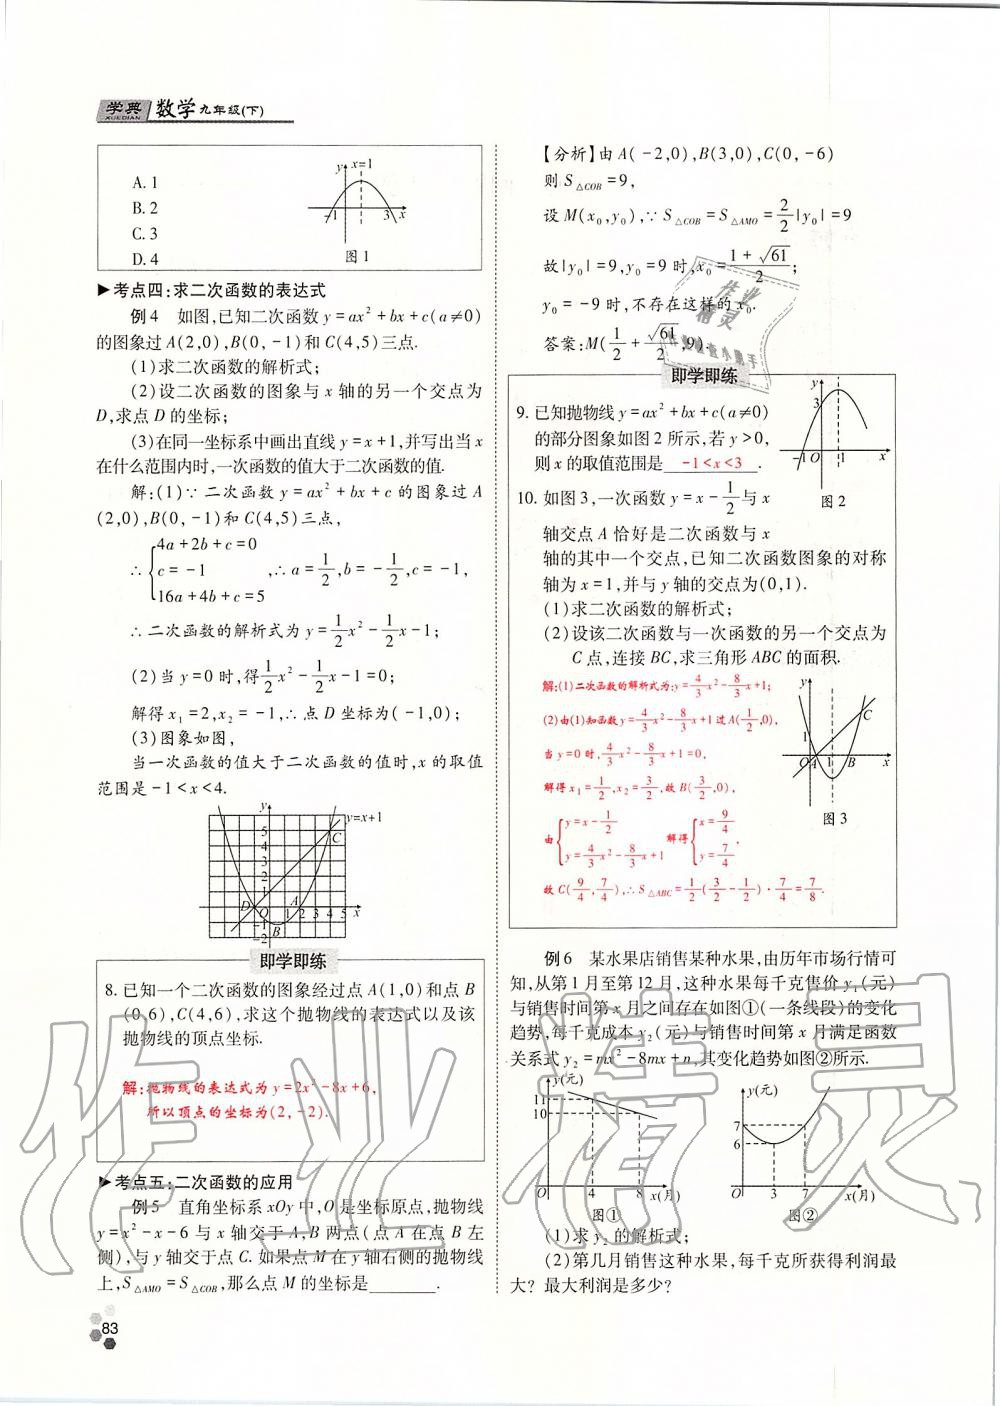 学典 数学 九年级(下)
XUEDIAN
A. 1
B. 2
C. 3
D. 4
y x=1
-1 3 x
图1
▶考点四:求二次函数的表达式
例4 如图,已知二次函数 y=ax²+bx+c(a≠0)
的图象过A(2,0),B(0,-1)和C(4,5)三点.
(1)求二次函数的解析式;
(2)设二次函数的图象与x轴的另一个交点为
D,求点D的坐标;
(3)在同一坐标系中画出直线y=x+1,并写出当x
在什么范围内时,一次函数的值大于二次函数的值.
解:(1)∵二次函数 y=ax²+bx+c 的图象过A
(2,0),B(0,-1)和C(4,5)三点,
∴{4a+2b+c=0
c=-1 ,∴a=1/2,b=-1/2,c=-1,
16a+4b+c=5
∴二次函数的解析式为 y=1/2x²-1/2x-1;
(2)当y=0时,得1/2x²-1/2x-1=0;
解得x₁=2,x₂=-1,∴点D坐标为(-1,0);
(3)图象如图,
当一次函数的值大于二次函数的值时,x的取值
范围是-1<x<4.
y y=x+1
5 C
4
3
2
1
D O A 1 2 3 4 5 x
-1 B
-2
即学即练
8. 已知一个二次函数的图象经过点A(1,0)和点B
(0,6),C(4,6),求这个抛物线的表达式以及该
抛物线的顶点坐标.
解:抛物线的表达式为y=2x²-8x+6,
所以顶点的坐标为(2,-2).
▶考点五:二次函数的应用
例5 直角坐标系xOy中,O是坐标原点,抛物线
y=x²-x-6与x轴交于A,B两点(点A在点B左
侧),与y轴交于点C.如果点M在y轴右侧的抛物线
上,S△AMO=S△COB,那么点M的坐标是________.
83
【分析】由A(-2,0),B(3,0),C(0,-6)
则S△COB=9,
设M(x₀,y₀),∵S△COB=S△AMO=2/2|y₀|=9
故|y₀|=9,y₀=9时,x₀=(1+√61)/2;
y₀=-9时,不存在这样的x₀.
答案:M(1/2+√61/2,9).
即学即练
9. 已知抛物线y=ax²+bx+c(a≠0)
的部分图象如图2所示,若y>0,
则x的取值范围是 -1<x<3 .
y
3
-1 O 1 x
图2
10. 如图3,一次函数y=x-1/2与x
轴交点A恰好是二次函数与x
轴的其中一个交点,已知二次函数图象的对称
轴为x=1,并与y轴的交点为(0,1).
(1)求二次函数的解析式;
(2)设该二次函数与一次函数的另一个交点为
C点,连接BC,求三角形ABC的面积.
解:(1)二次函数的解析式为:y=4/3x²-8/3x+1;
(2)由(1)知函数y=4/3x²-8/3x+1过A(1/2,0),
当y=0时,4/3x²-8/3x+1=0,
解得x₁=1/2,x₂=3/2,故B(3/2,0),
由{y=x-1/2 解得{x=9/4
y=4/3x²-8/3x+1 y=7/4,
故C(9/4,7/4),∴S△ABC=1/2(3/2-1/2)·7/4=7/8.
y
C
1
O A 1 B x
图3
例6 某水果店销售某种水果,由历年市场行情可
知,从第1月至第12月,这种水果每千克售价y₁(元)
与销售时间第x月之间存在如图①(一条线段)的变化
趋势,每千克成本y₂(元)与销售时间第x月满足函数
关系式y₂=mx²-8mx+n,其变化趋势如图②所示.
y(元)
11
10
O 4 8 x(月)
图①
y(元)
7
6
O 3 7 x(月)
图②
(1)求y₂的解析式;
(2)第几月销售这种水果,每千克所获得利润最
大?最大利润是多少?
作业精灵
作业
精灵